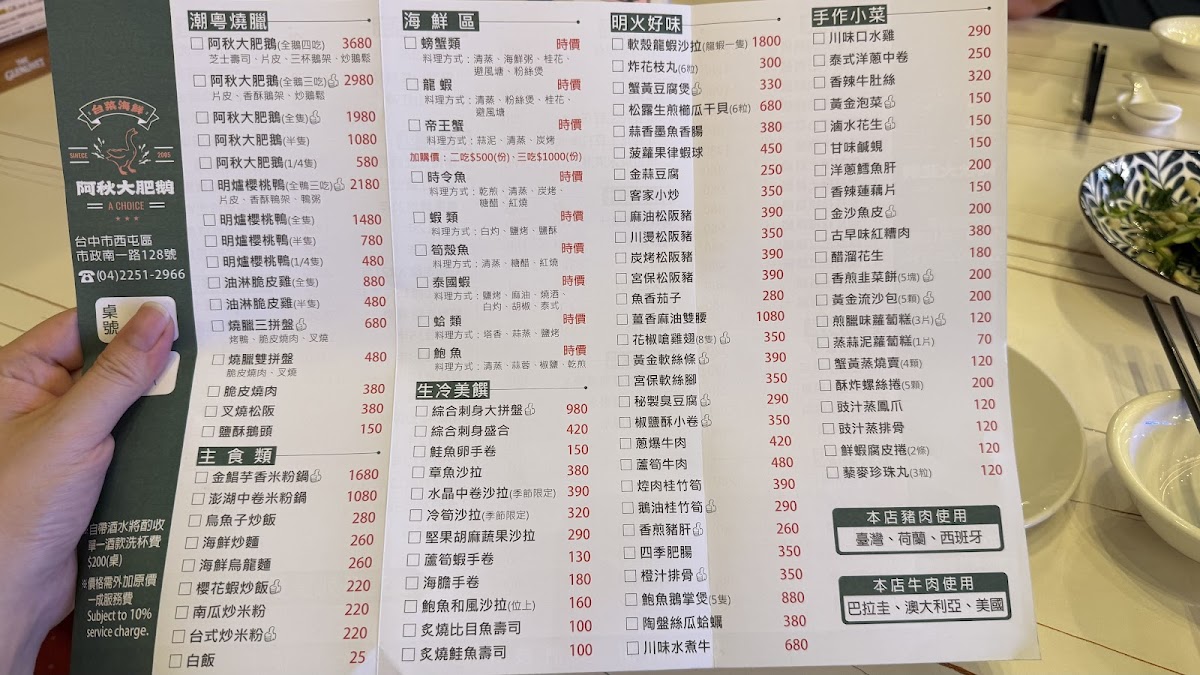 THE
GLENLIVET
台菜海鮮
SINCE 2005
阿秋大肥鵝
A CHOICE
台中市西屯區
市政南一路128號
☎(04)2251-2966
桌號
自帶酒水將酌收
單一酒款洗杯費
$200(桌)
※價格需外加原價
一成服務費
Subject to 10%
service charge.
潮粵燒臘
阿秋大肥鵝(全鵝四吃) 3680
芝士壽司、片皮、三杯鵝架、炒鵝鬆
阿秋大肥鵝(全鵝三吃) 2980
片皮、香酥鵝架、炒鵝鬆
阿秋大肥鵝(全隻) 1980
阿秋大肥鵝(半隻) 1080
阿秋大肥鵝(1/4隻) 580
明爐櫻桃鴨(全鴨三吃) 2180
片皮、香酥鴨架、鴨粥
明爐櫻桃鴨(全隻) 1480
明爐櫻桃鴨(半隻) 780
明爐櫻桃鴨(1/4隻) 480
油淋脆皮雞(全隻) 880
油淋脆皮雞(半隻) 480
燒臘三拼盤 680
烤鴨、脆皮燒肉、叉燒
燒臘雙拼盤 480
脆皮燒肉、叉燒
脆皮燒肉 380
叉燒松阪 380
鹽酥鵝頭 150
主食類
金鯧芋香米粉鍋 1680
澎湖中卷米粉鍋 1080
烏魚子炒飯 280
海鮮炒麵 260
海鮮烏龍麵 260
櫻花蝦炒飯 220
南瓜炒米粉 220
台式炒米粉 220
白飯 25
海鮮區
螃蟹類 時價
料理方式：清蒸、海鮮粥、桂花、
避風塘、粉絲煲
龍蝦 時價
料理方式：清蒸、粉絲煲、桂花、
避風塘
帝王蟹 時價
料理方式：蒜泥、清蒸、炭烤
加購價：二吃$500(份)、三吃$1000(份)
時令魚 時價
料理方式：乾煎、清蒸、炭烤、
糖醋、紅燒
蝦類 時價
料理方式：白灼、鹽烤、鹽酥
筍殼魚 時價
料理方式：清蒸、糖醋、紅燒
泰國蝦 時價
料理方式：鹽烤、麻油、燒酒、
白灼、胡椒、泰式
蛤類 時價
料理方式：塔香、蒜蒸、鹽烤
鮑魚 時價
料理方式：清蒸、蒜蓉、椒鹽、乾煎
生冷美饌
綜合刺身大拼盤 980
綜合刺身盛合 420
鮭魚卵手卷 150
章魚沙拉 380
水晶中卷沙拉(季節限定) 390
冷筍沙拉(季節限定) 320
堅果胡麻蔬果沙拉 290
蘆筍蝦手卷 130
海膽手卷 180
鮑魚和風沙拉(位上) 160
炙燒比目魚壽司 100
炙燒鮭魚壽司 100
明火好味
軟殼龍蝦沙拉(龍蝦一隻) 1800
炸花枝丸(6粒) 300
蟹黃豆腐煲 330
松露生煎櫛瓜干貝(6粒) 680
蒜香墨魚香腸 380
菠蘿果律蝦球 450
金蒜豆腐 250
客家小炒 350
麻油松阪豬 390
川燙松阪豬 350
炭烤松阪豬 390
宮保松阪豬 390
魚香茄子 280
薑香麻油雙腰 1080
花椒嗆雞翅(8隻) 350
黃金軟絲條 390
宮保軟絲腳 350
秘製臭豆腐 290
椒鹽酥小卷 350
蔥爆牛肉 420
蘆筍牛肉 480
焢肉桂竹筍 390
鵝油桂竹筍 290
香煎豬肝 260
四季肥腸 350
橙汁排骨 350
鮑魚鵝掌煲(5隻) 880
陶盤絲瓜蛤蠣 380
川味水煮牛 680
手作小菜
川味口水雞 290
泰式洋蔥中卷 250
香辣牛肚絲 320
黃金泡菜 150
滷水花生 150
甘味鹹蜆 150
洋蔥鱈魚肝 200
香辣蓮藕片 150
金沙魚皮 200
古早味紅糟肉 380
醋溜花生 180
香煎韭菜餅(5塊) 200
黃金流沙包(5顆) 200
煎臘味蘿蔔糕(3片) 120
蒸蒜泥蘿蔔糕(1片) 70
蟹黃蒸燒賣(4顆) 120
酥炸螺絲捲(5顆) 200
豉汁蒸鳳爪 120
豉汁蒸排骨 120
鮮蝦腐皮捲(2條) 120
藜麥珍珠丸(3粒) 120
本店豬肉使用
臺灣、荷蘭、西班牙
本店牛肉使用
巴拉圭、澳大利亞、美國